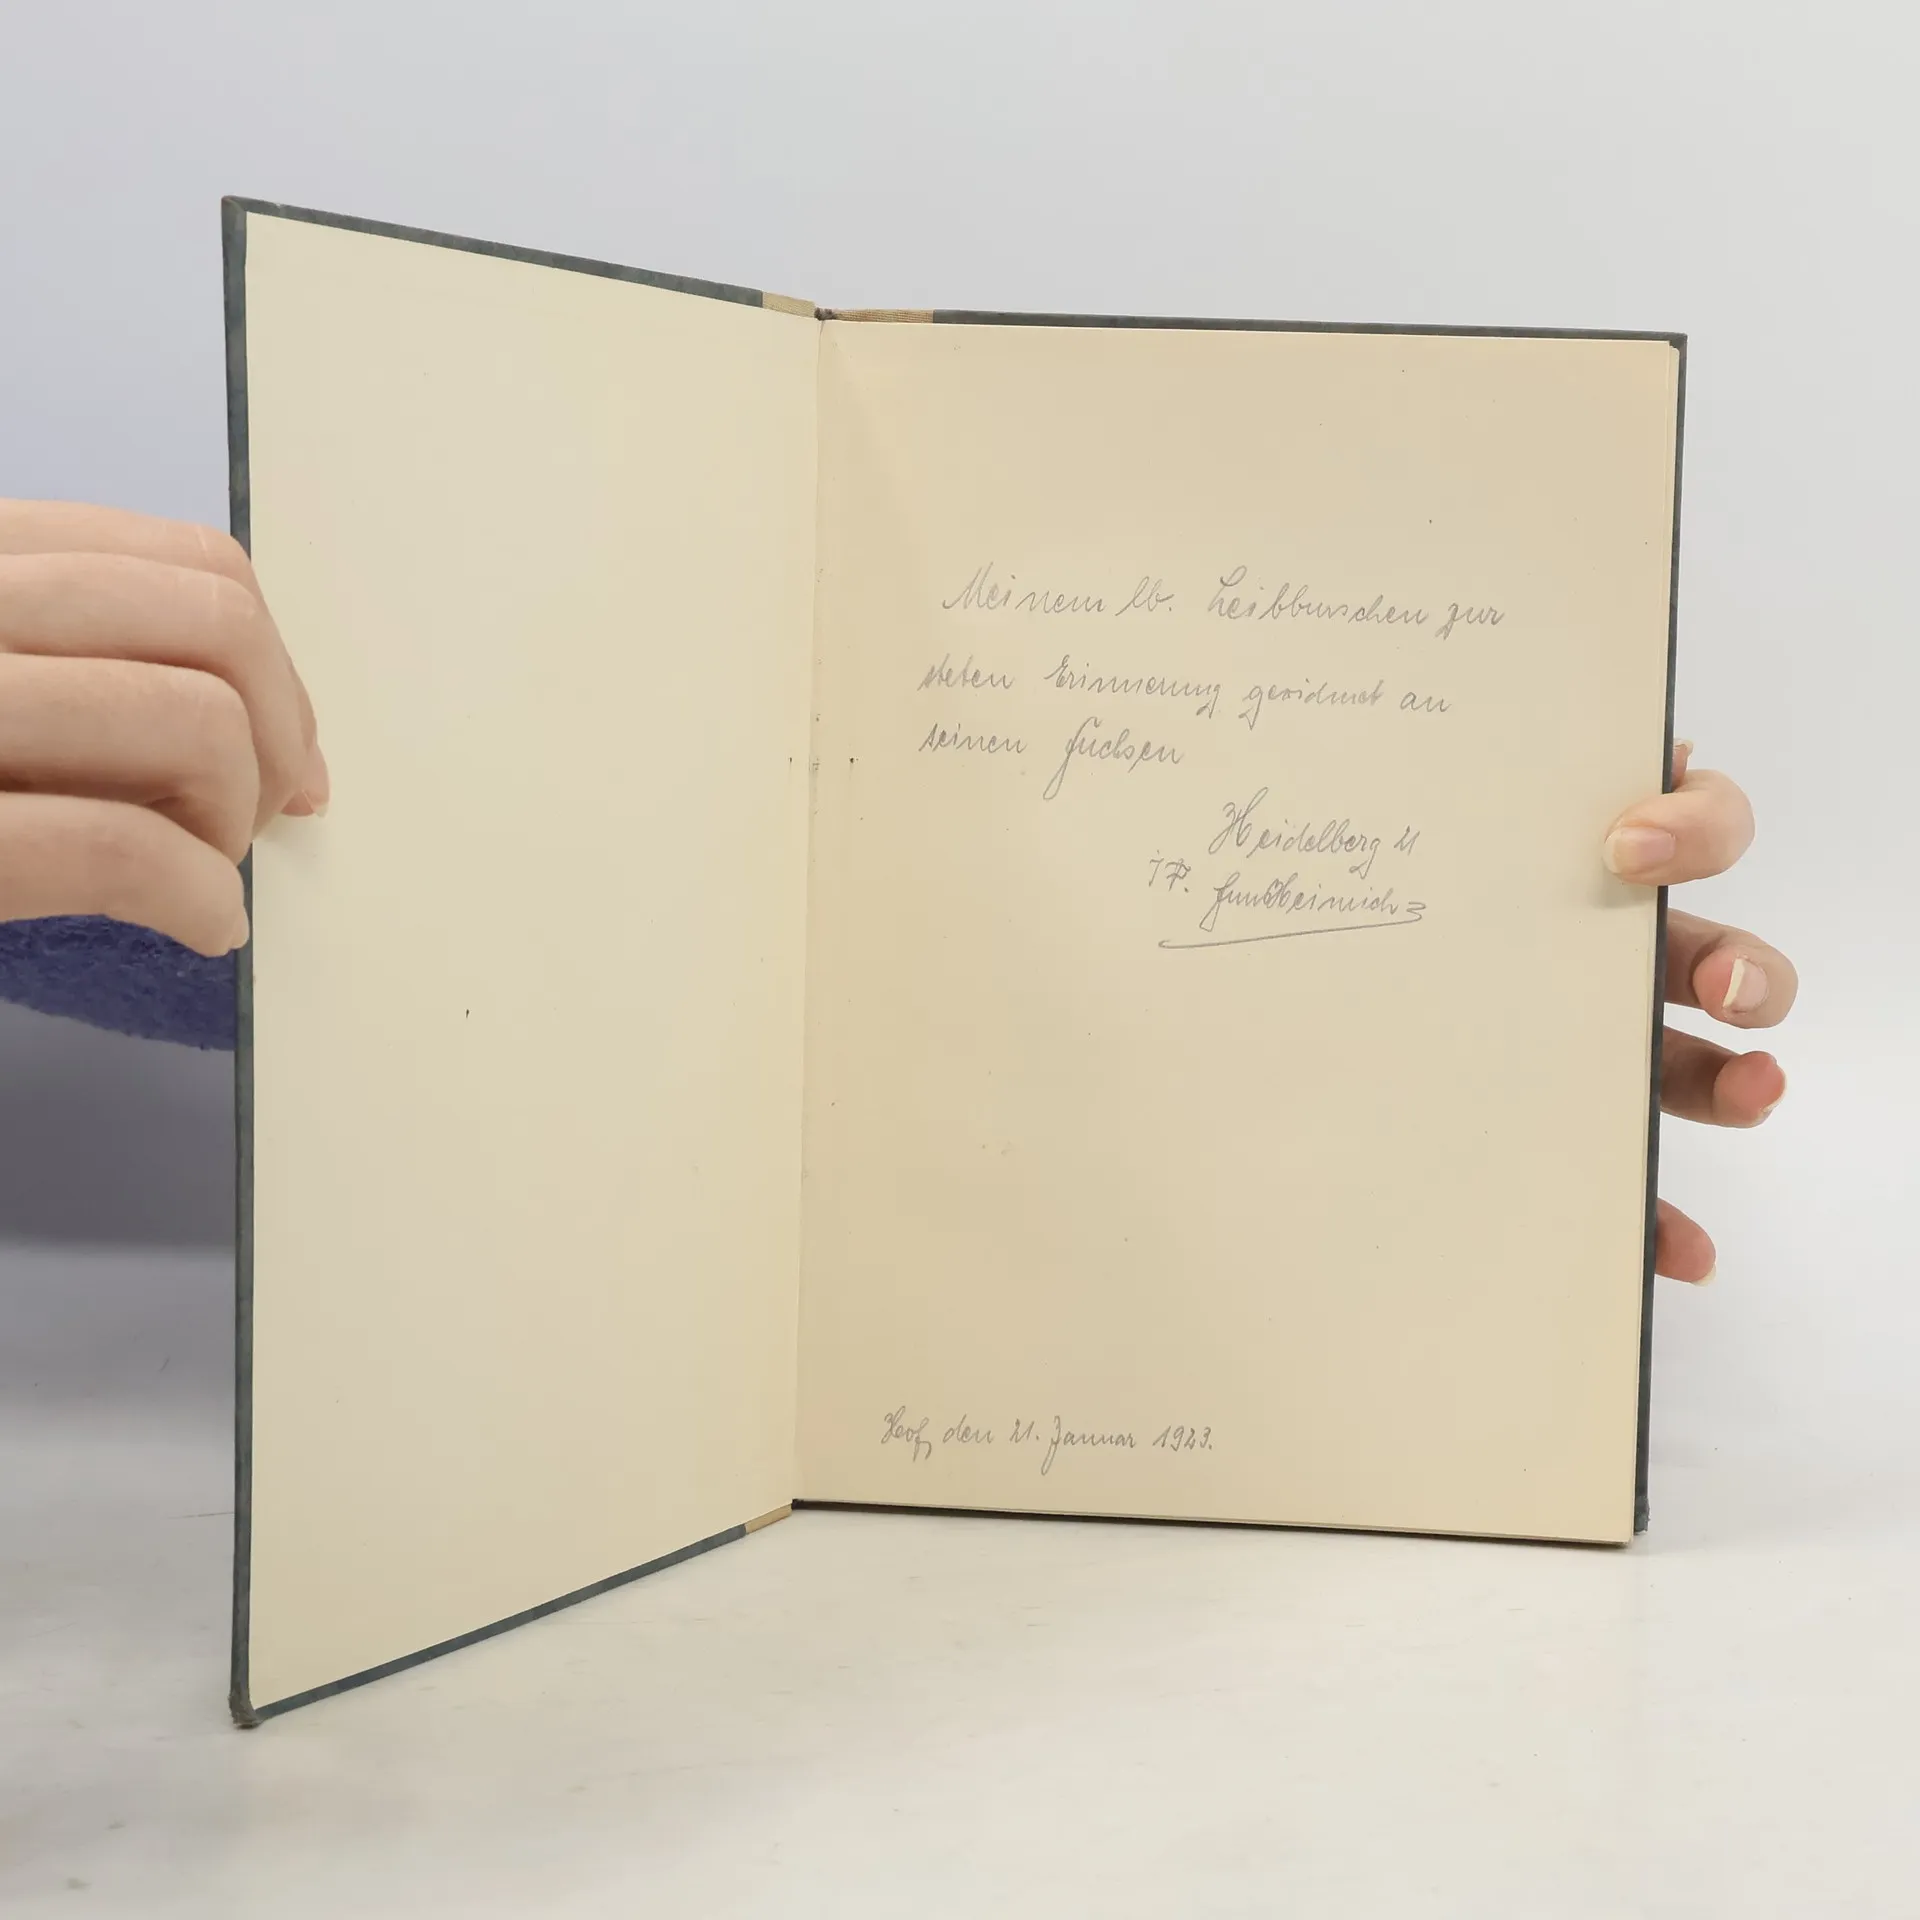 Meinem lb. Leibburschen zur
steten Erinnerung gewidmet an
seinen Fuchsen
Heidelberg 21
Hof, den 21. Januar 1923.